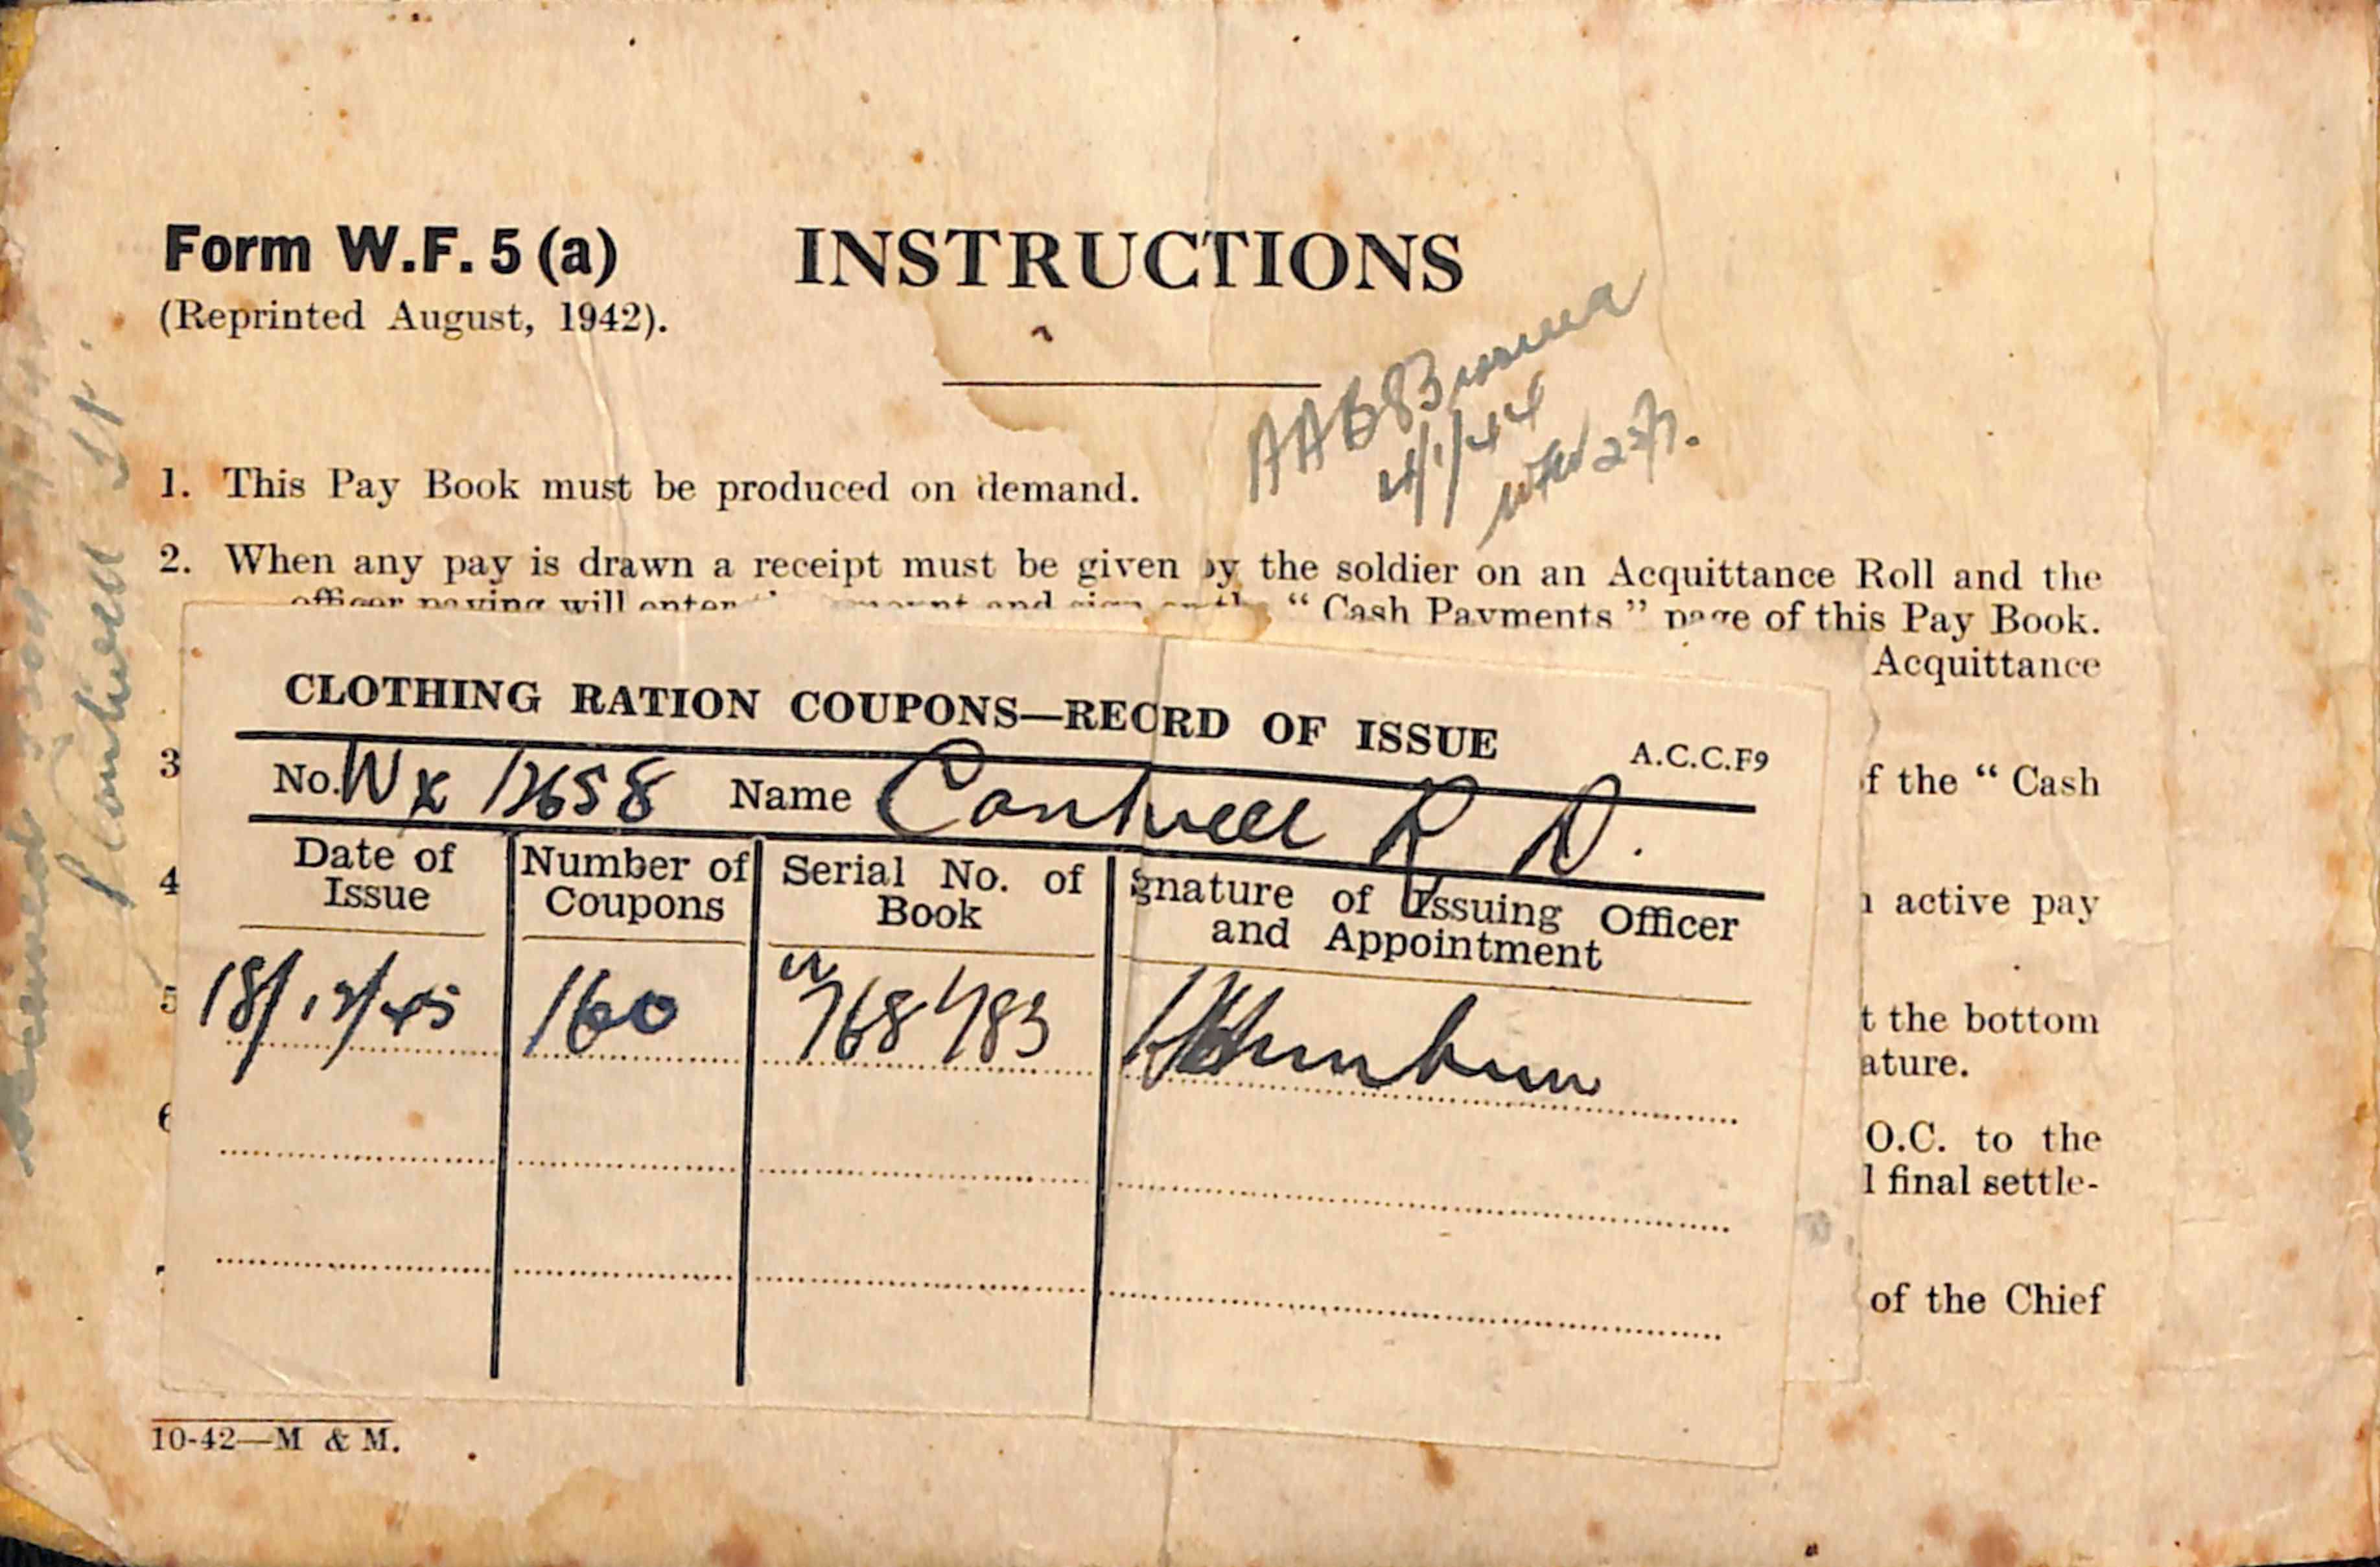 Form W.F. 5 (a)
INSTRUCTIONS
(Reprinted August, 1942).
AAB83
4/1/44
1. This Pay Book must be produced on demand.
2. When any pay is drawn a receipt must be given by the soldier on an Acquittance Roll and the
officer paying will enter amount and sign on the “ Cash Payments ” page of this Pay Book.
Acquittance
3
f the “ Cash
4
active pay
5
t the bottom
ature.
6
O.C. to the
l final settle-
of the Chief
CLOTHING RATION COUPONS—RECRD OF ISSUE
A.C.C.F9
No. Wx 12658 Name Cantwell R D.
Date of Issue
Number of Coupons
Serial No. of Book
gnature of Issuing Officer and Appointment
18/12/45 160 768783
10-42—M & M.